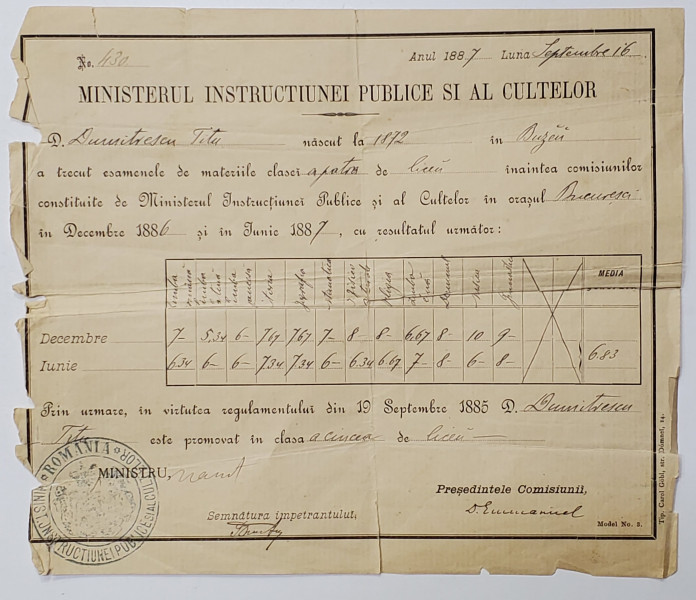 No. 430 Anul 1887 Luna Septembre 16
MINISTERUL INSTRUCTIUNEI PUBLICE SI AL CULTELOR
D. Dumitrescu Titu născut la 1872 în Buzĕŭ
a trecut esamenele de materiile clasei a patra de liceŭ înaintea comisiunilor
constituite de Ministerul Instrucţiunei Publice şi al Cultelor în oraşul Bucureşci
în Decembre 1886 şi în Iunie 1887, cu resultatul următor:
MEDIA
Decembre 7- 5.34 6- 7.67 7.67 7- 8- 8- 6.67 8- 10 9-
Iunie 6.34 6- 6- 7.34 7.34 6- 6.34 6.67 7- 8- 6- 8- 6.83
Prin urmare, în virtutea regulamentului din 19 Septembre 1885 D. Dumitrescu
Titu este promovat în clasa a cincea de liceŭ
MINISTRU,
Preşedintele Comisiunii,
D. Emmanuel
Semnătura impetrantului,
Model No. 3.
Tip. Carol Göbl, str. Dómneĭ, 14.
ROMANIA
MINIST. INSTRUCTIUNEI PUBLICE SI AL CULTELOR